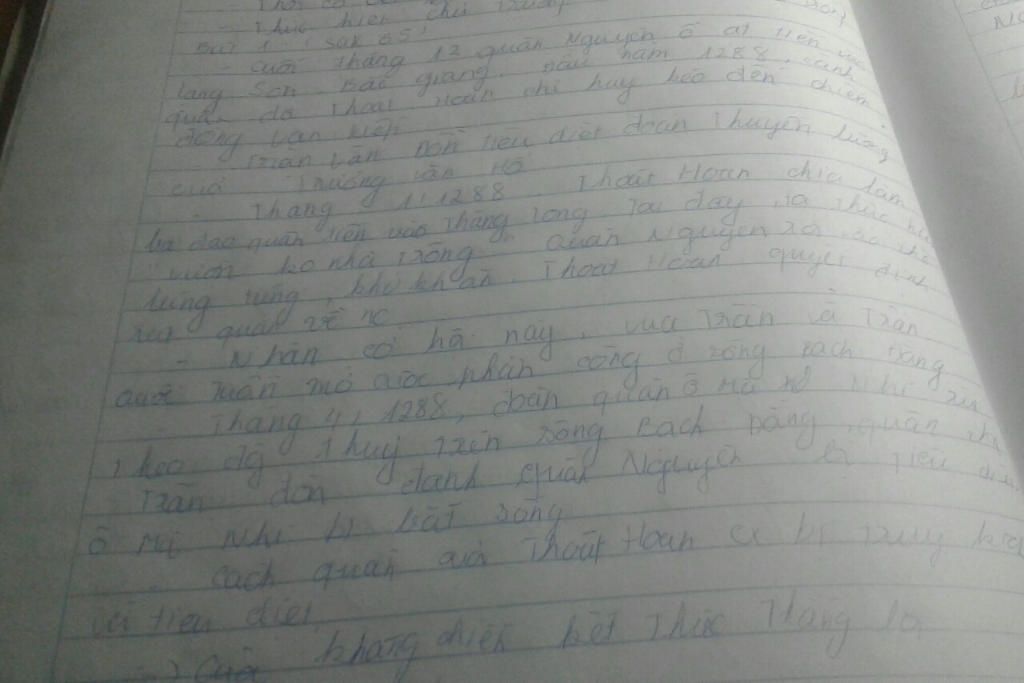 - Thời cơ
- Thực hiện chủ trương
Bài 1 (SGK 65)
- Cuối tháng 12 quân Nguyên ồ ạt tiến vào
Lạng Sơn Bắc Giang. Đầu năm 1288, cánh
quân do Thoát Hoan chỉ huy kéo đến chiếm
đóng Vạn Kiếp
- Trần Văn Đồn tiêu diệt đoàn thuyền lương
của Trương Văn Hổ
- Tháng 1/1288 Thoát Hoan chia làm
ba đạo quân tiến vào Thăng Long. Tại đây, ta thực hiện
"vườn ko nhà trống" quân Nguyên rơi vào thế
lúng túng, khó khăn. Thoát Hoan quyết định
rút quân về nc
- Nhân cơ hội này, vua Trần và Trần
Quốc Tuấn mở cuộc phản công ở sông Bạch Đằng
- Tháng 4/1288, đoàn quân Ô Mã Nhi rút
theo đg thuỷ trên sông Bạch Đằng, quân nhà
Trần đón đánh quân Nguyên bị tiêu diệt
Ô Mã Nhi bị bắt sống
- Cách quân của Thoát Hoan cx bị truy kích
và tiêu diệt
=> Cuộc kháng chiến kết thúc thắng lợi